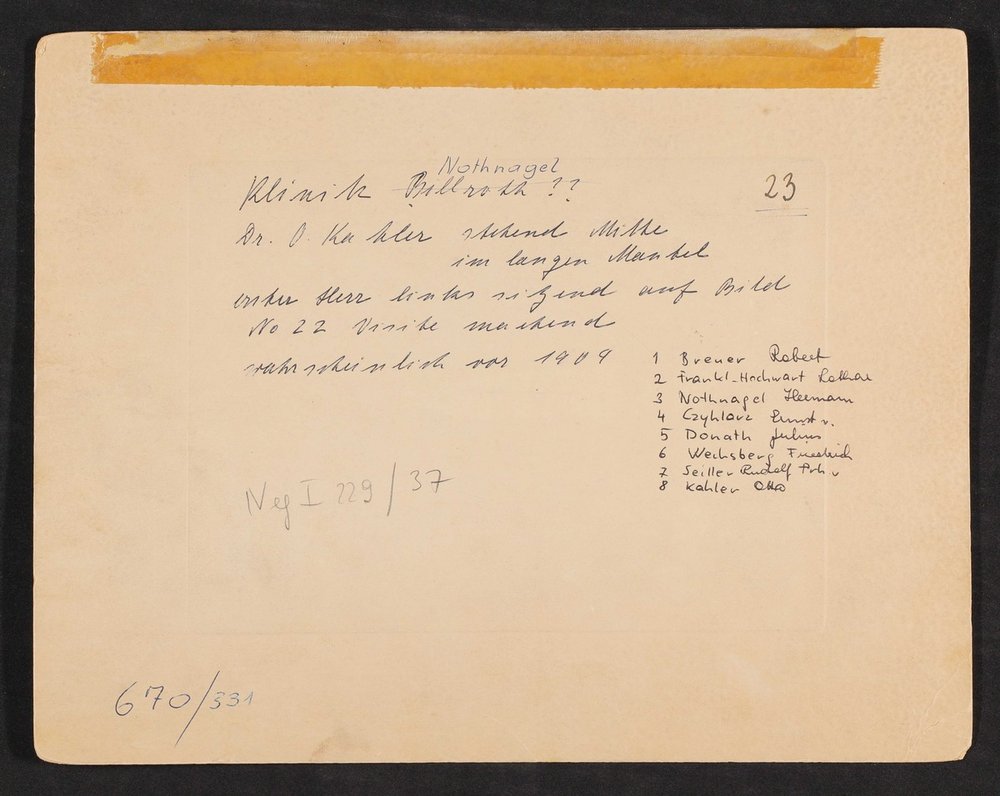 Nothnagel
Klinik Billroth ??
23
Dr. O. Kahler stehend Mitte
im langen Mantel
erster Herr links sitzend auf Bild
No 22 Visite machend
wahrscheinlich vor 1909
1 Breuer Robert
2 Frankl-Hochwart Lothar
3 Nothnagel Hermann
4 Czyhlarz Ernst v.
5 Donath Julius
6 Wechsberg Friedrich
7 Seiller Rudolf Frh. v
8 Kahler Otto
Neg I 229/37
670/331